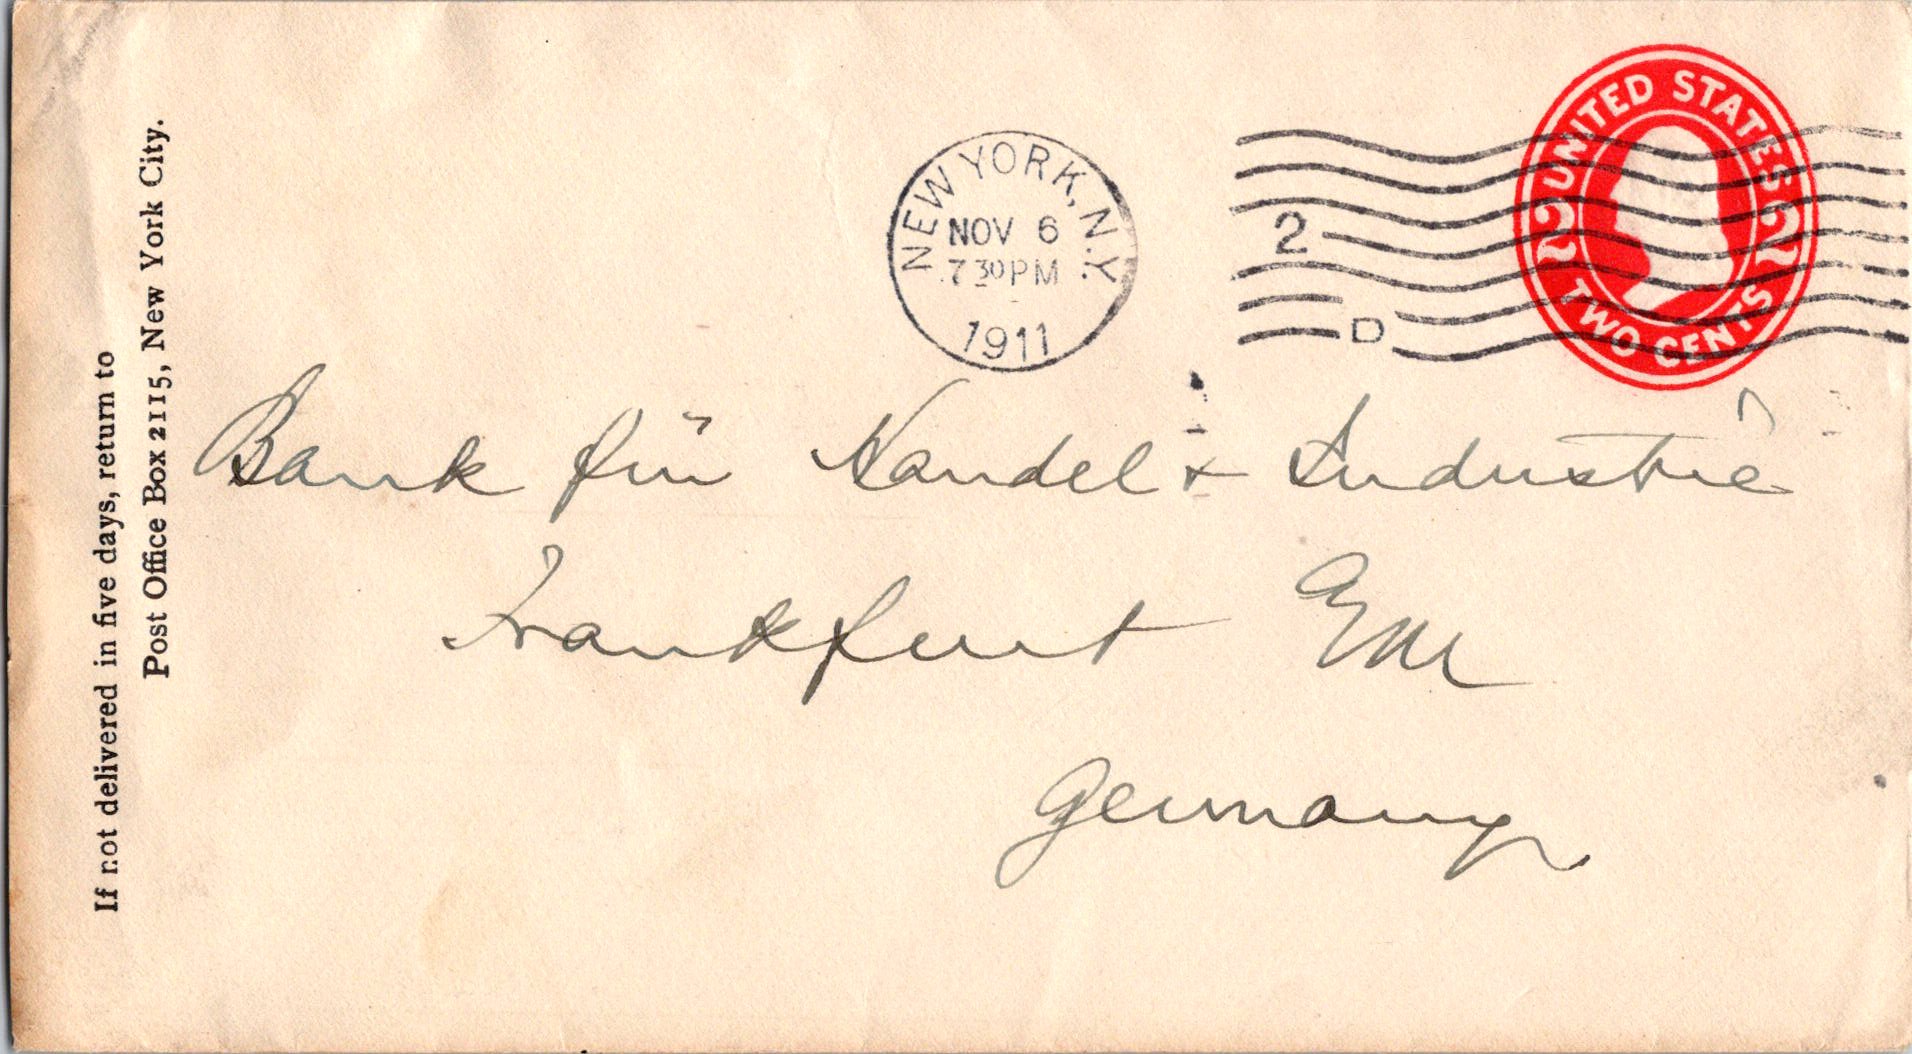 If not delivered in five days, return to
Post Office Box 2115, New York City.
NEW YORK, N.Y.
NOV 6
7 30 PM
1911
2
D
UNITED STATES
2 2
TWO CENTS
Bank für Handel & Industrie
Frankfurt
Germany